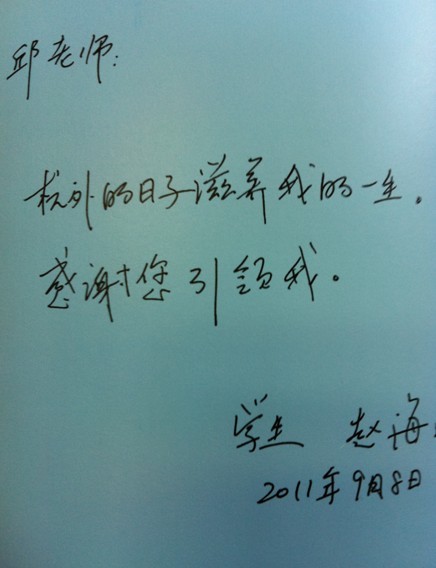 邱老师:
杭外的日子滋养我的一生。
感谢您引领我。
学生 赵海
2011年9月8日